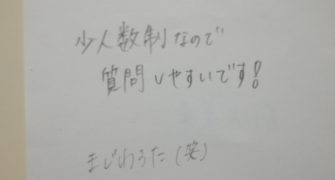 少人数制なので
質問しやすいです!
まじわうた(笑)